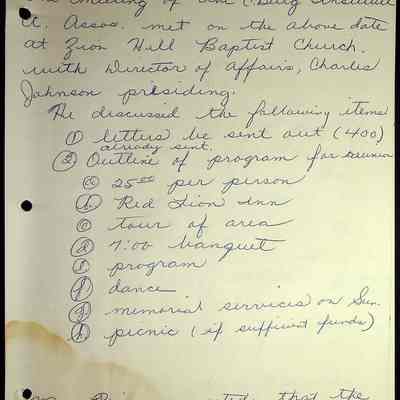 meeting of the C.Burg Institute
A. Assoc. met on the above date
at Zion Hill Baptist Church.
with Director of Affairs, Charles
Johnson presiding.
He discussed the following items
① letters be sent out (400)
already sent.
② Outline of program for reunion
ⓐ 25⁰⁰ per person
ⓑ Red Lion Inn
ⓒ tour of area
ⓓ 7:00 banquet
ⓔ program
ⓕ dance
ⓖ memorial services on Sun.
ⓗ picnic (if sufficient funds)
that the